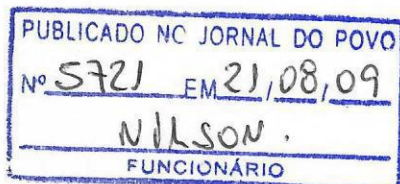 PUBLICADO NO JORNAL DO POVO
Nº 5721 EM 21,08,09
NILSON.
FUNCIONÁRIO